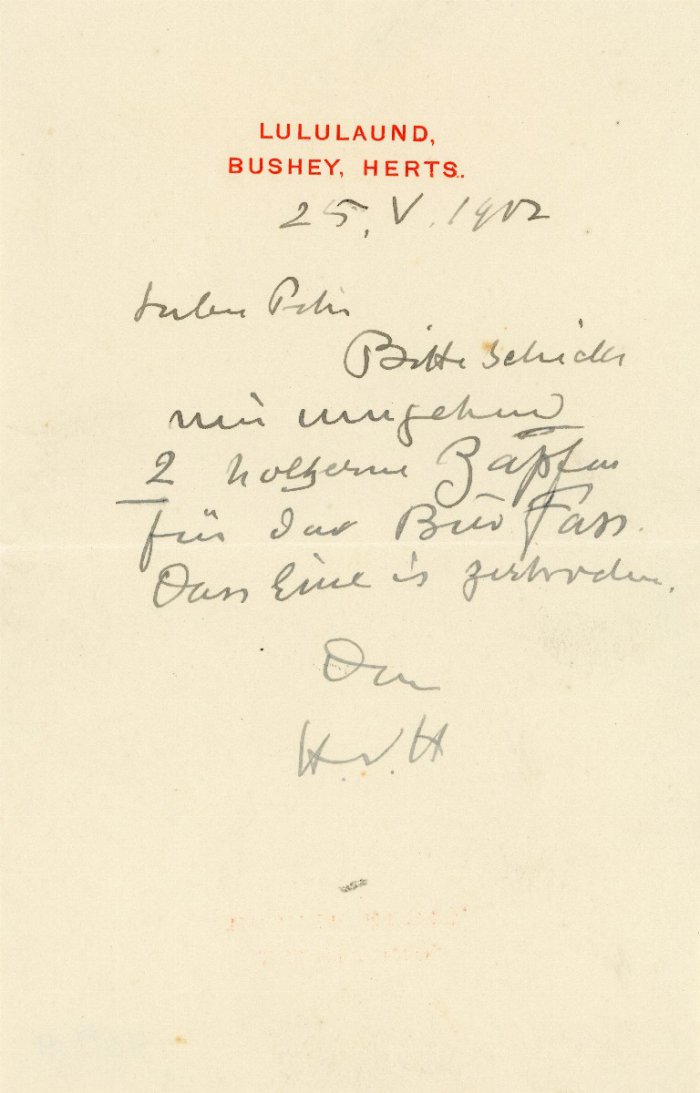 LULULAUND,
BUSHEY, HERTS.
25. V. 1902
Lieber
Bitte schicke
mir umgehend
2 holzerne Zäpfen
für das Bier Fass.
Dass Eine is zerbrochen.
Dein
H.v.H